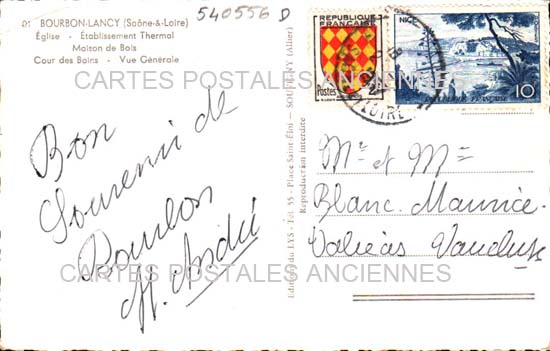 540556 D
01 BOURBON-LANCY (Saône-&-Loire)
Église - Établissement Thermal
Maison de Bois
Cour des Bains - Vue Générale
CARTES POSTALES ANCIENNES
Bon
Souvenir de
Bourbon
H. André
Editions du LYS - Tél. 55 - Place Saint-Éloi - SOUVIGNY (Allier)
Reproduction interdite
RÉPUBLIQUE
FRANÇAISE
Postes
NICE
10
LOIRE
Mr et Me
Blanc Maurice
Valréas Vaucluse
CARTES POSTALES ANCIENNES